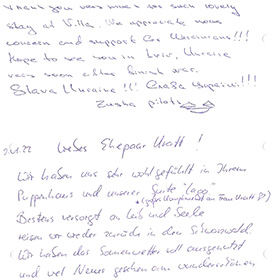 Thank you very much for such lovely
stay at Villa. We appreciate your
concern and support for Ukrainians!!!
Hope to see you in Lviv, Ukraine
very soon after finish war.
Slava Ukraine!!! Слава Україні!!!
pilots
Liebes Ehepaar
Wir haben uns sehr wohlgefühlt in Ihrem
Puppenhaus und unserer Suite "Lago"
Bestens versorgt an Leib und Seele
reisen wir wieder zurück in den Schwarzwald
Wir haben das Sommerwetter voll ausgenutzt
und viel Neues gesehen am wunderschönen